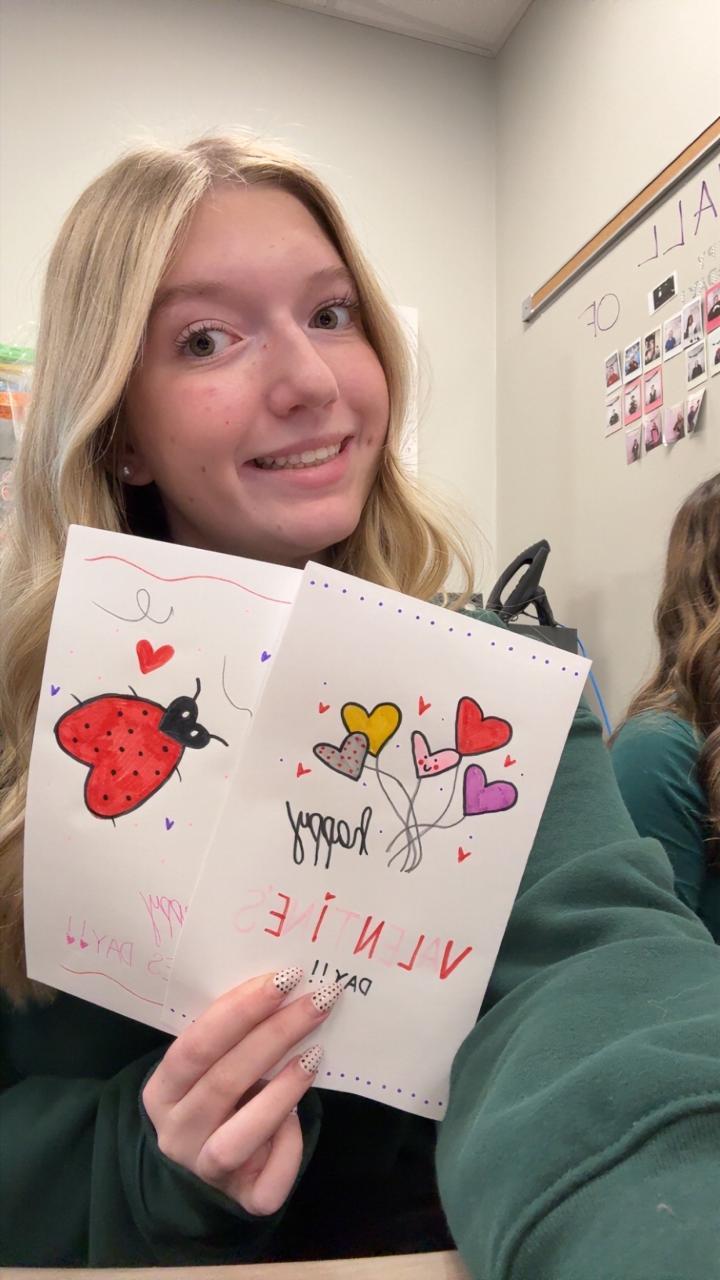 ALL
OF
happy
VALENTINE'S
DAY!!
ppy
E'S DAY!!